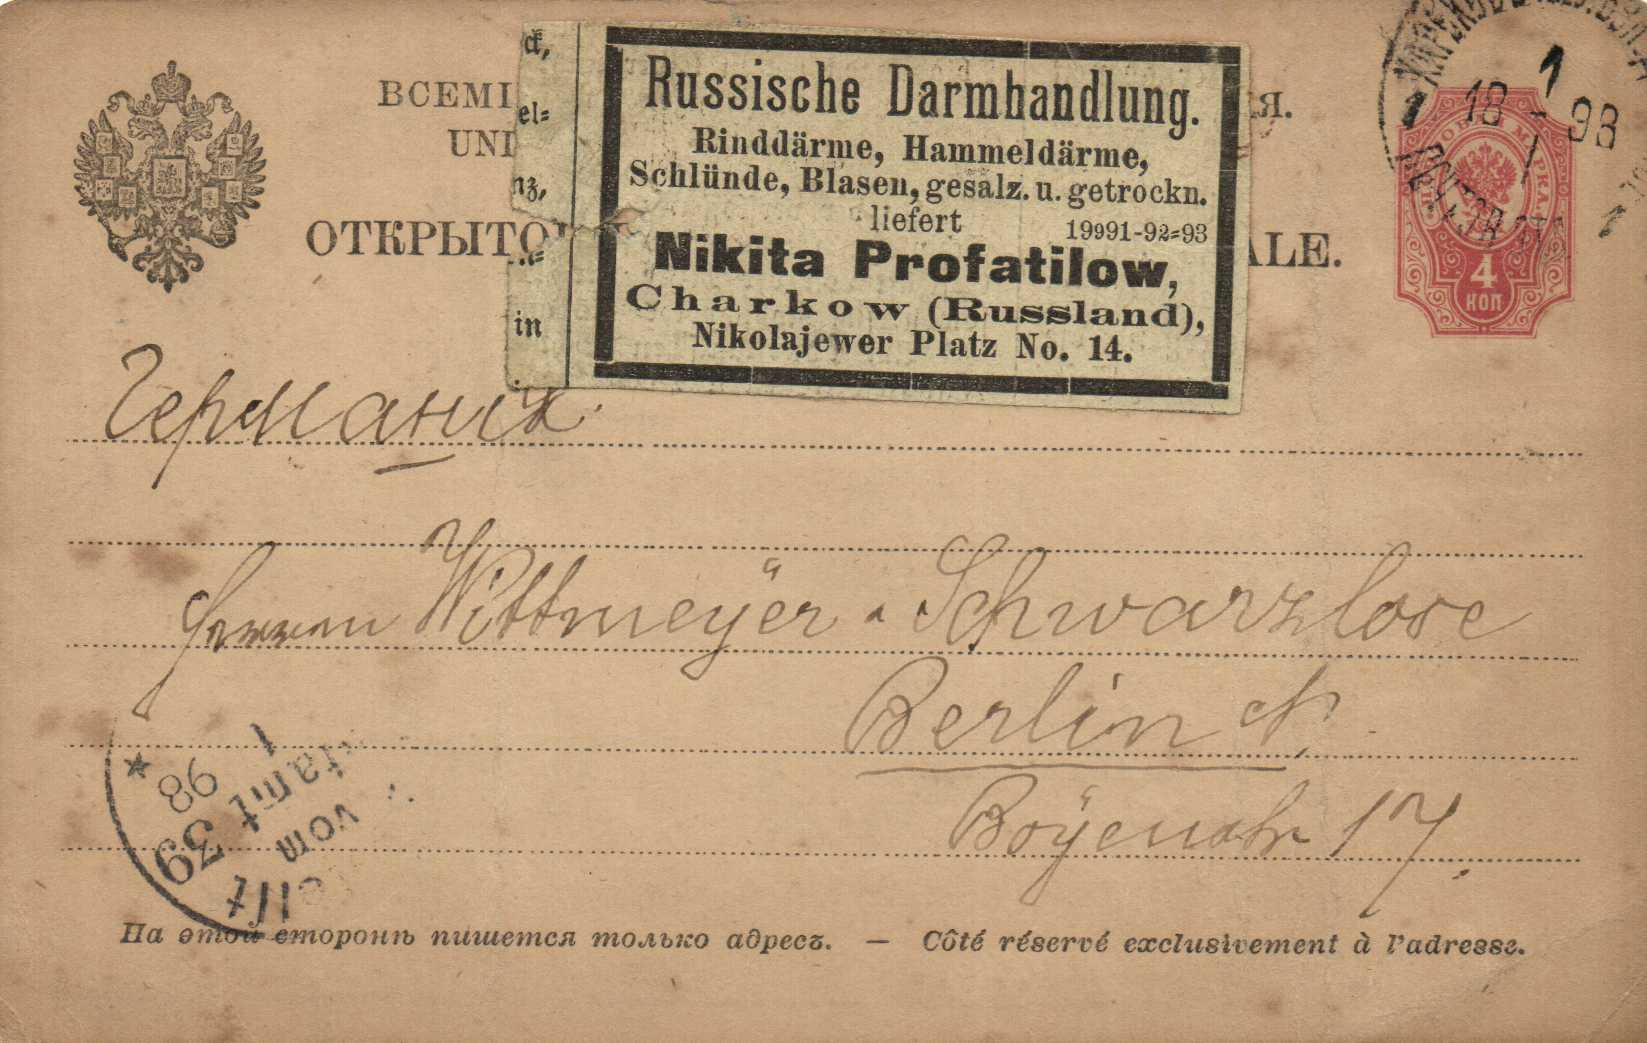 ВСЕМІ
Я.
UNI
ОТКРЫТО
ALE.
ck,
el=
nz,
in
Russische Darmhandlung.
Rinddärme, Hammeldärme,
Schlünde, Blasen, gesalz. u. getrockn.
liefert 19991-92=93
Nikita Profatilow,
Charkow (Russland),
Nikolajewer Platz No. 14.
18 1 98
4
КОП
Германія.
Herren Wittmeÿer & Schwarzlose
Berlin N.
Boÿenstr 17.
1
98
39
tamt
vom
ellt
На этой сторонѣ пишется только адресъ. — Côté réservé exclusivement à l'adresse.